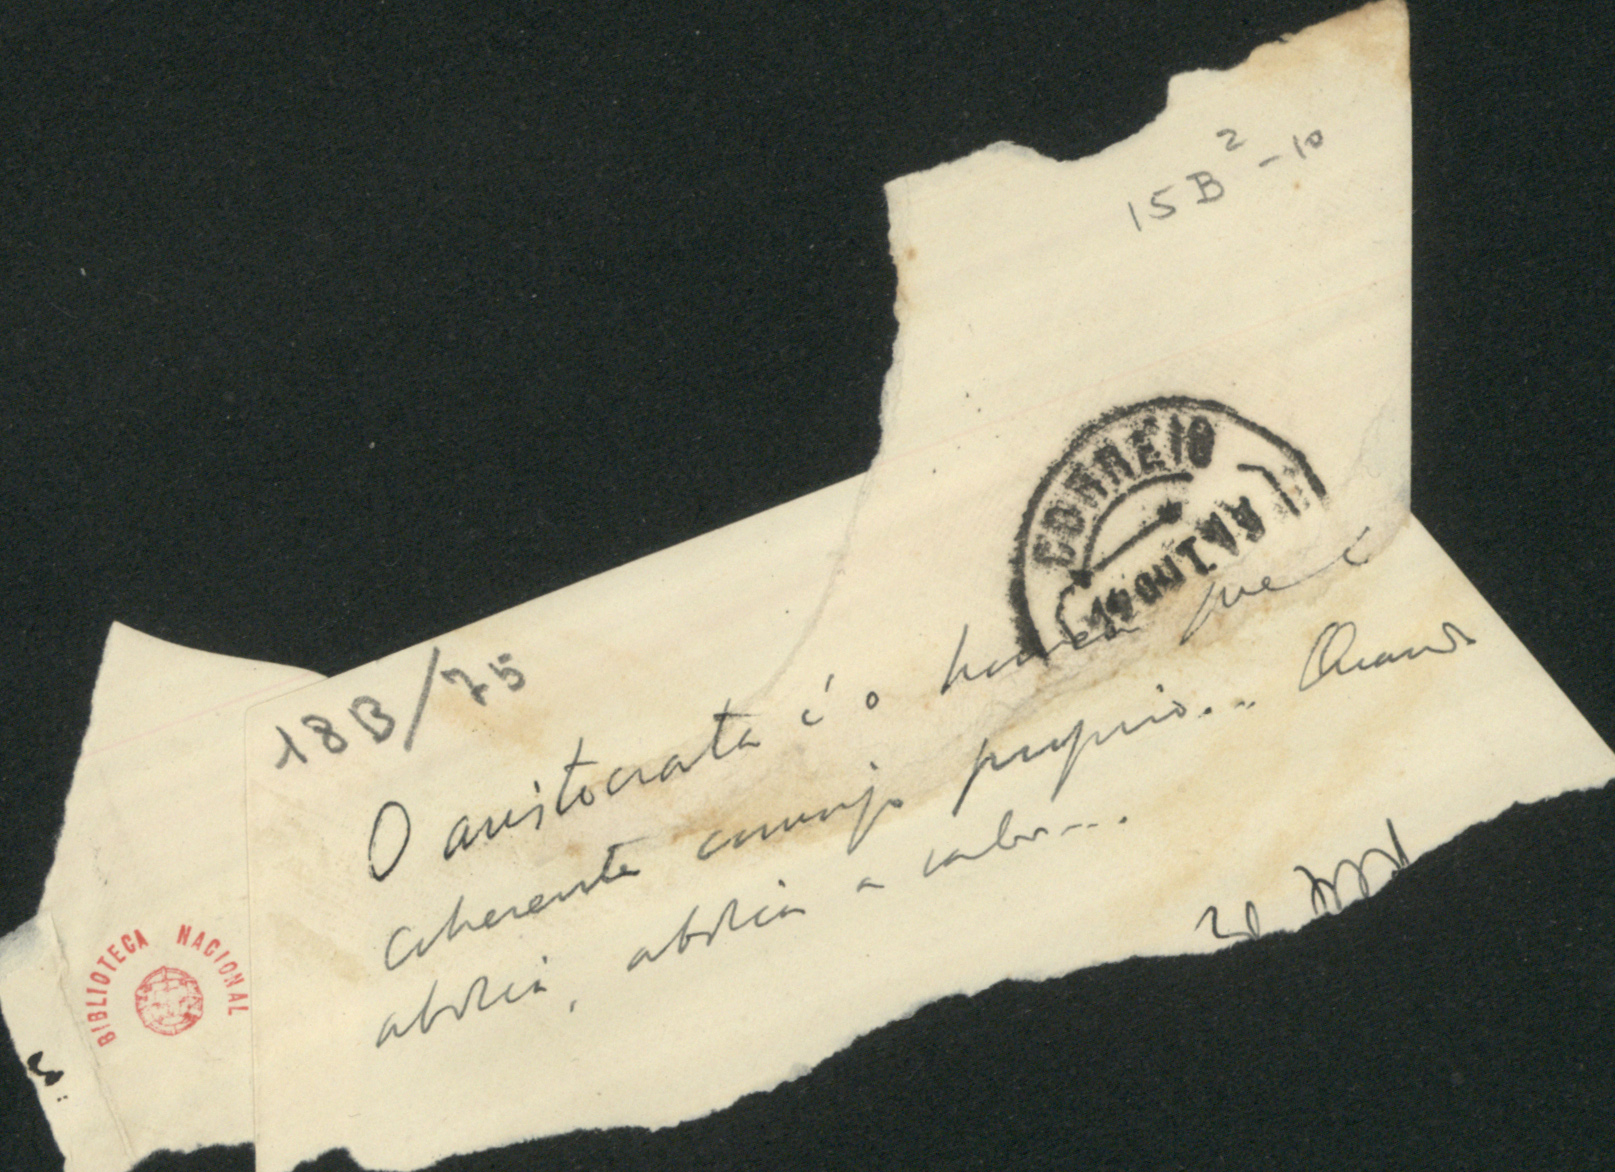 15B²-10
CORREIO
18B/75
O aristocrata é o homem que é
coherente comsigo proprio... Quando
abdica, abdica a valer...
BIBLIOTECA NACIONAL